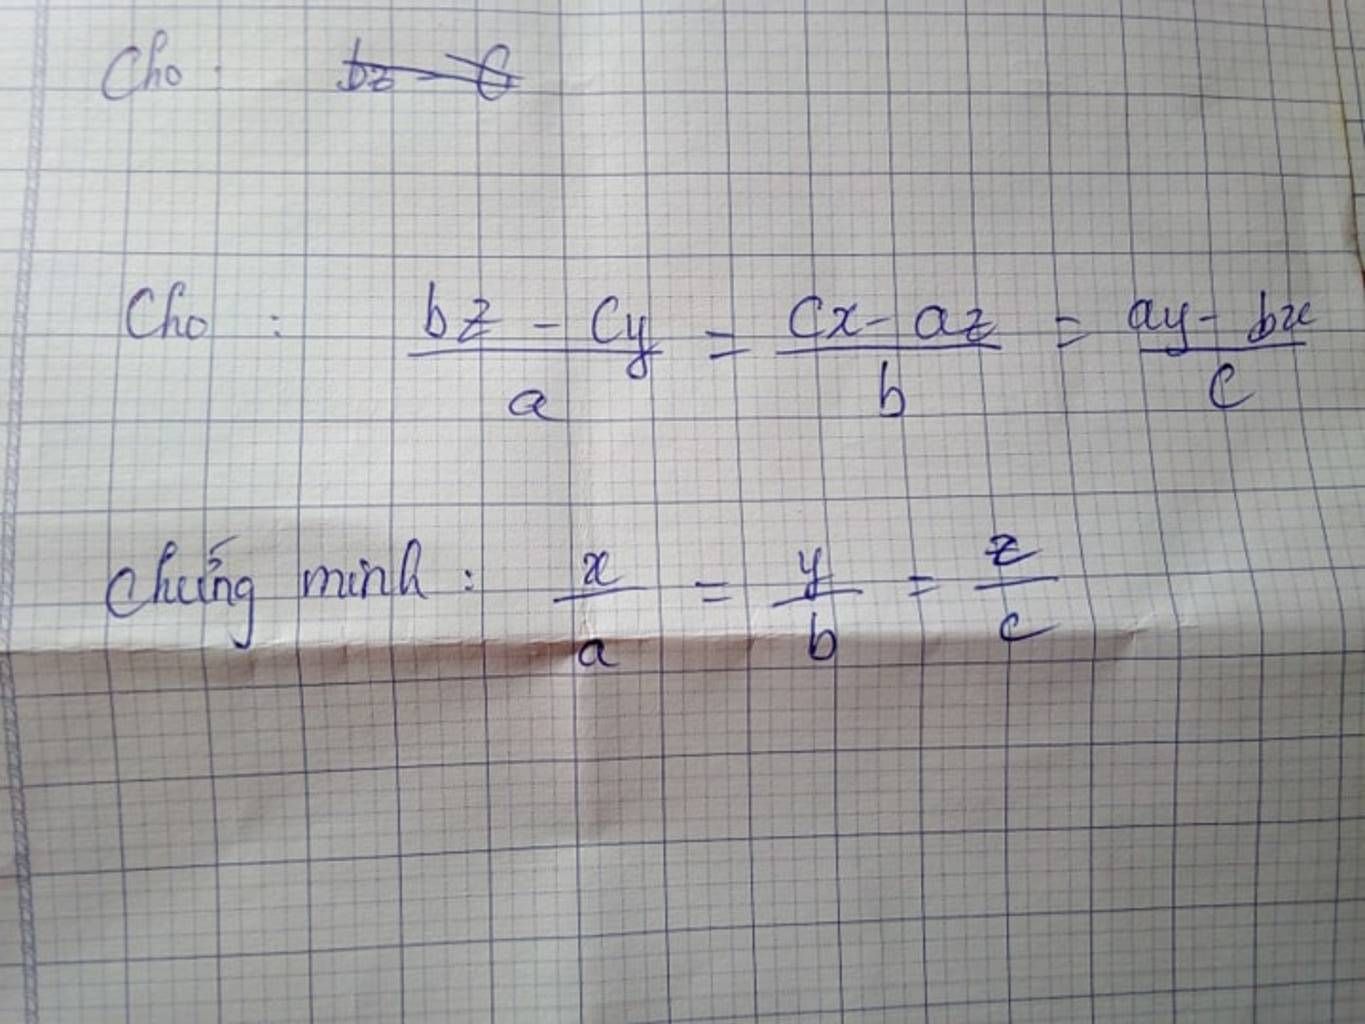 Cho : bz - C
Cho : \frac{bz - Cy}{a} = \frac{Cx - az}{b} = \frac{ay - bx}{C}
Chứng minh : \frac{x}{a} = \frac{y}{b} = \frac{z}{c}